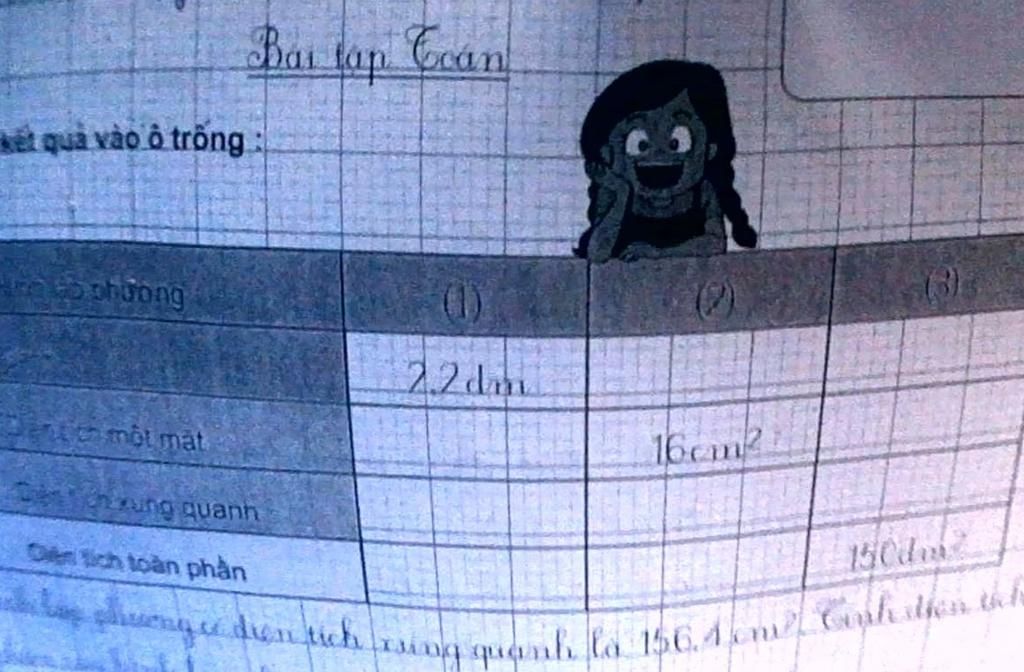 Bài tập Toán
kết quả vào ô trống :
phương (1) (2) (3)
2,2 dm
một mặt 16cm²
Diện tích xung quanh
Diện tích toàn phần 150dm²
phương có diện tích xung quanh là 156,4 cm². Tính diện tích